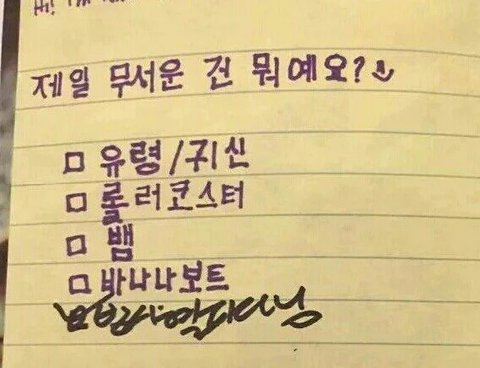 Hi! I'm
제일 무서운 건 뭐예요?
□ 유령/귀신
□ 롤러코스터
□ 뱀
□ 바나나보트
피디님